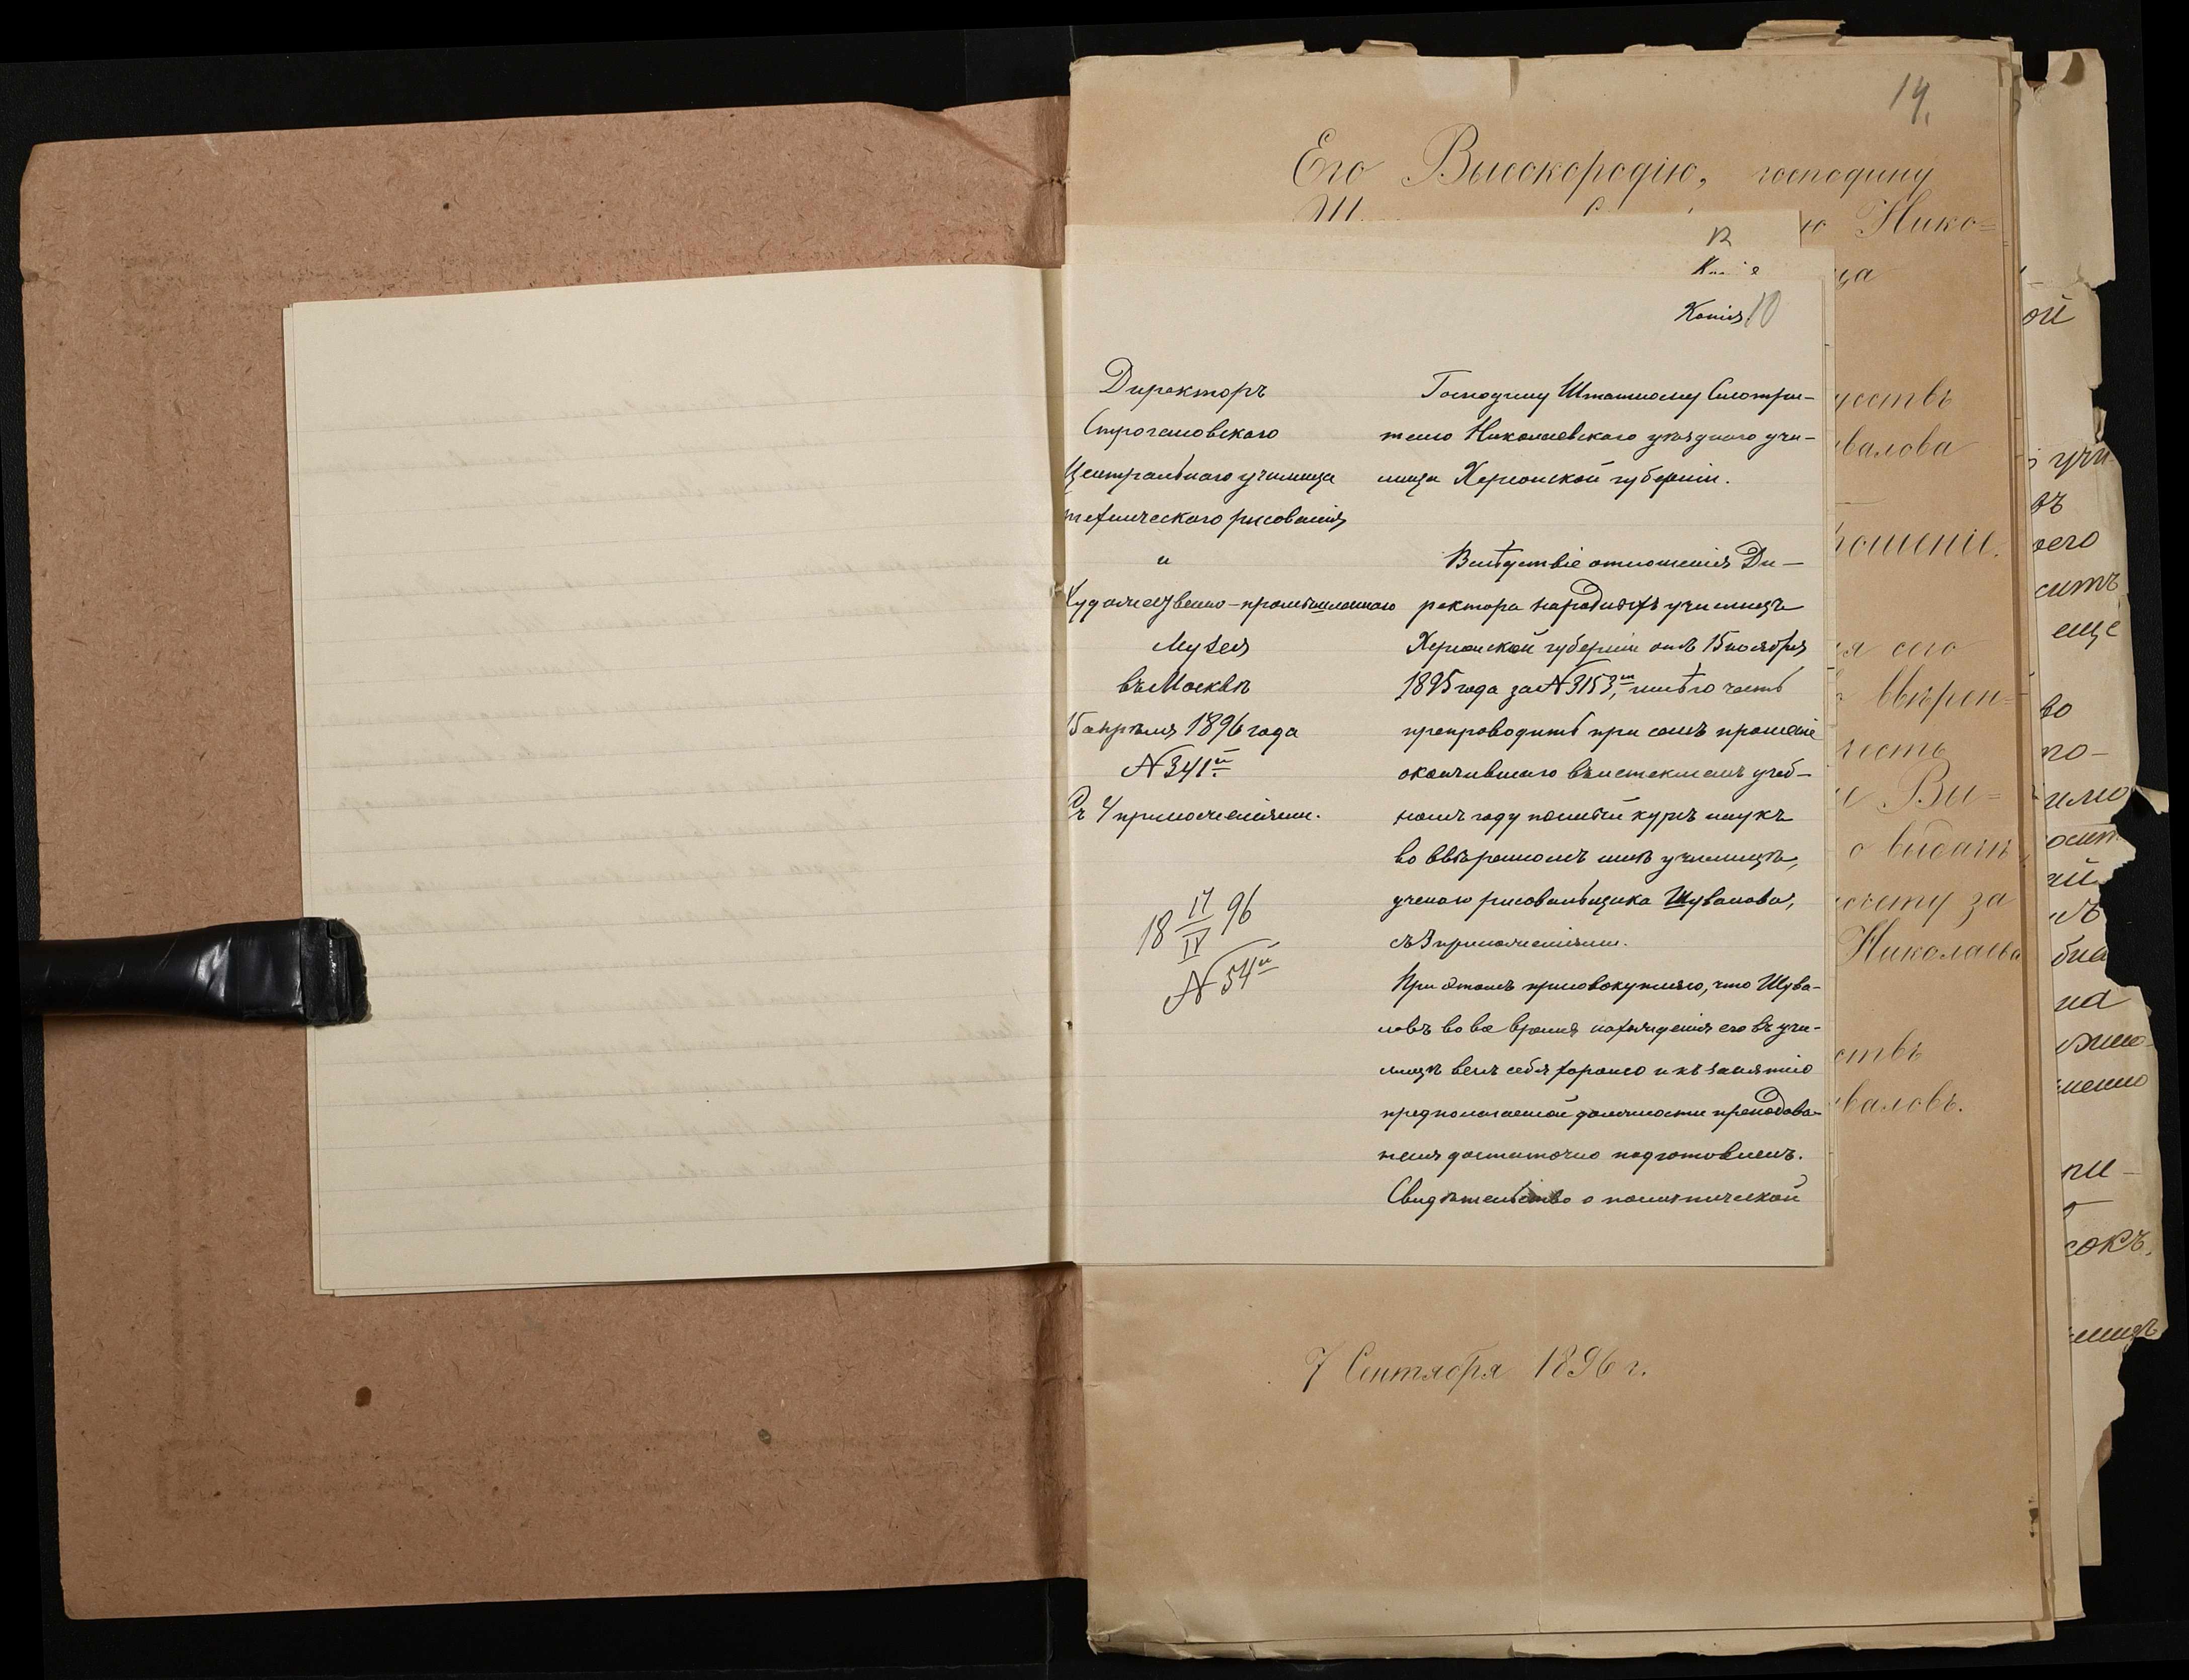 14.
Его Высокородію, господину
ю Нико=
Копія 10
Директоръ
Строгановскаго
Центральнаго училища
техническаго рисованія
и
Художественно-промышленнаго
Музея
въ Москвѣ
15 апрѣля 1896 года
№ 341й
Съ 4 приложеніями.
18 17/IV 96
№ 54й
Господину Штатному Смотри-
телю Николаевскаго уѣзднаго учи-
лища Херсонской губерніи.
Вслѣдствіе отношенія Ди-
ректора народныхъ училищъ
Херсонской губерніи отъ 15 ноября
1895 года за № 3153, имѣю честь
препроводить при семъ прошеніе
окончившаго въ истекшемъ учеб-
номъ году полный курсъ наукъ
во ввѣренномъ мнѣ училищѣ,
ученаго рисовальщика Шувалова,
съ 3 приложеніями.
При этомъ присовокупляю, что Шува-
ловъ во все время нахожденія его въ учи-
лищѣ велъ себя хорошо и къ занятію
предполагаемой должности преподава-
теля достаточно подготовленъ.
Свидѣтельство о политической
валова
ошеніе.
я сего
ввѣрен=
честь
Ви=
о выдачѣ
счету за
Николаева
валовъ.
7 Сентября 1896 г.
ой
учи
его
сить
еще
во
по-
на
пи-